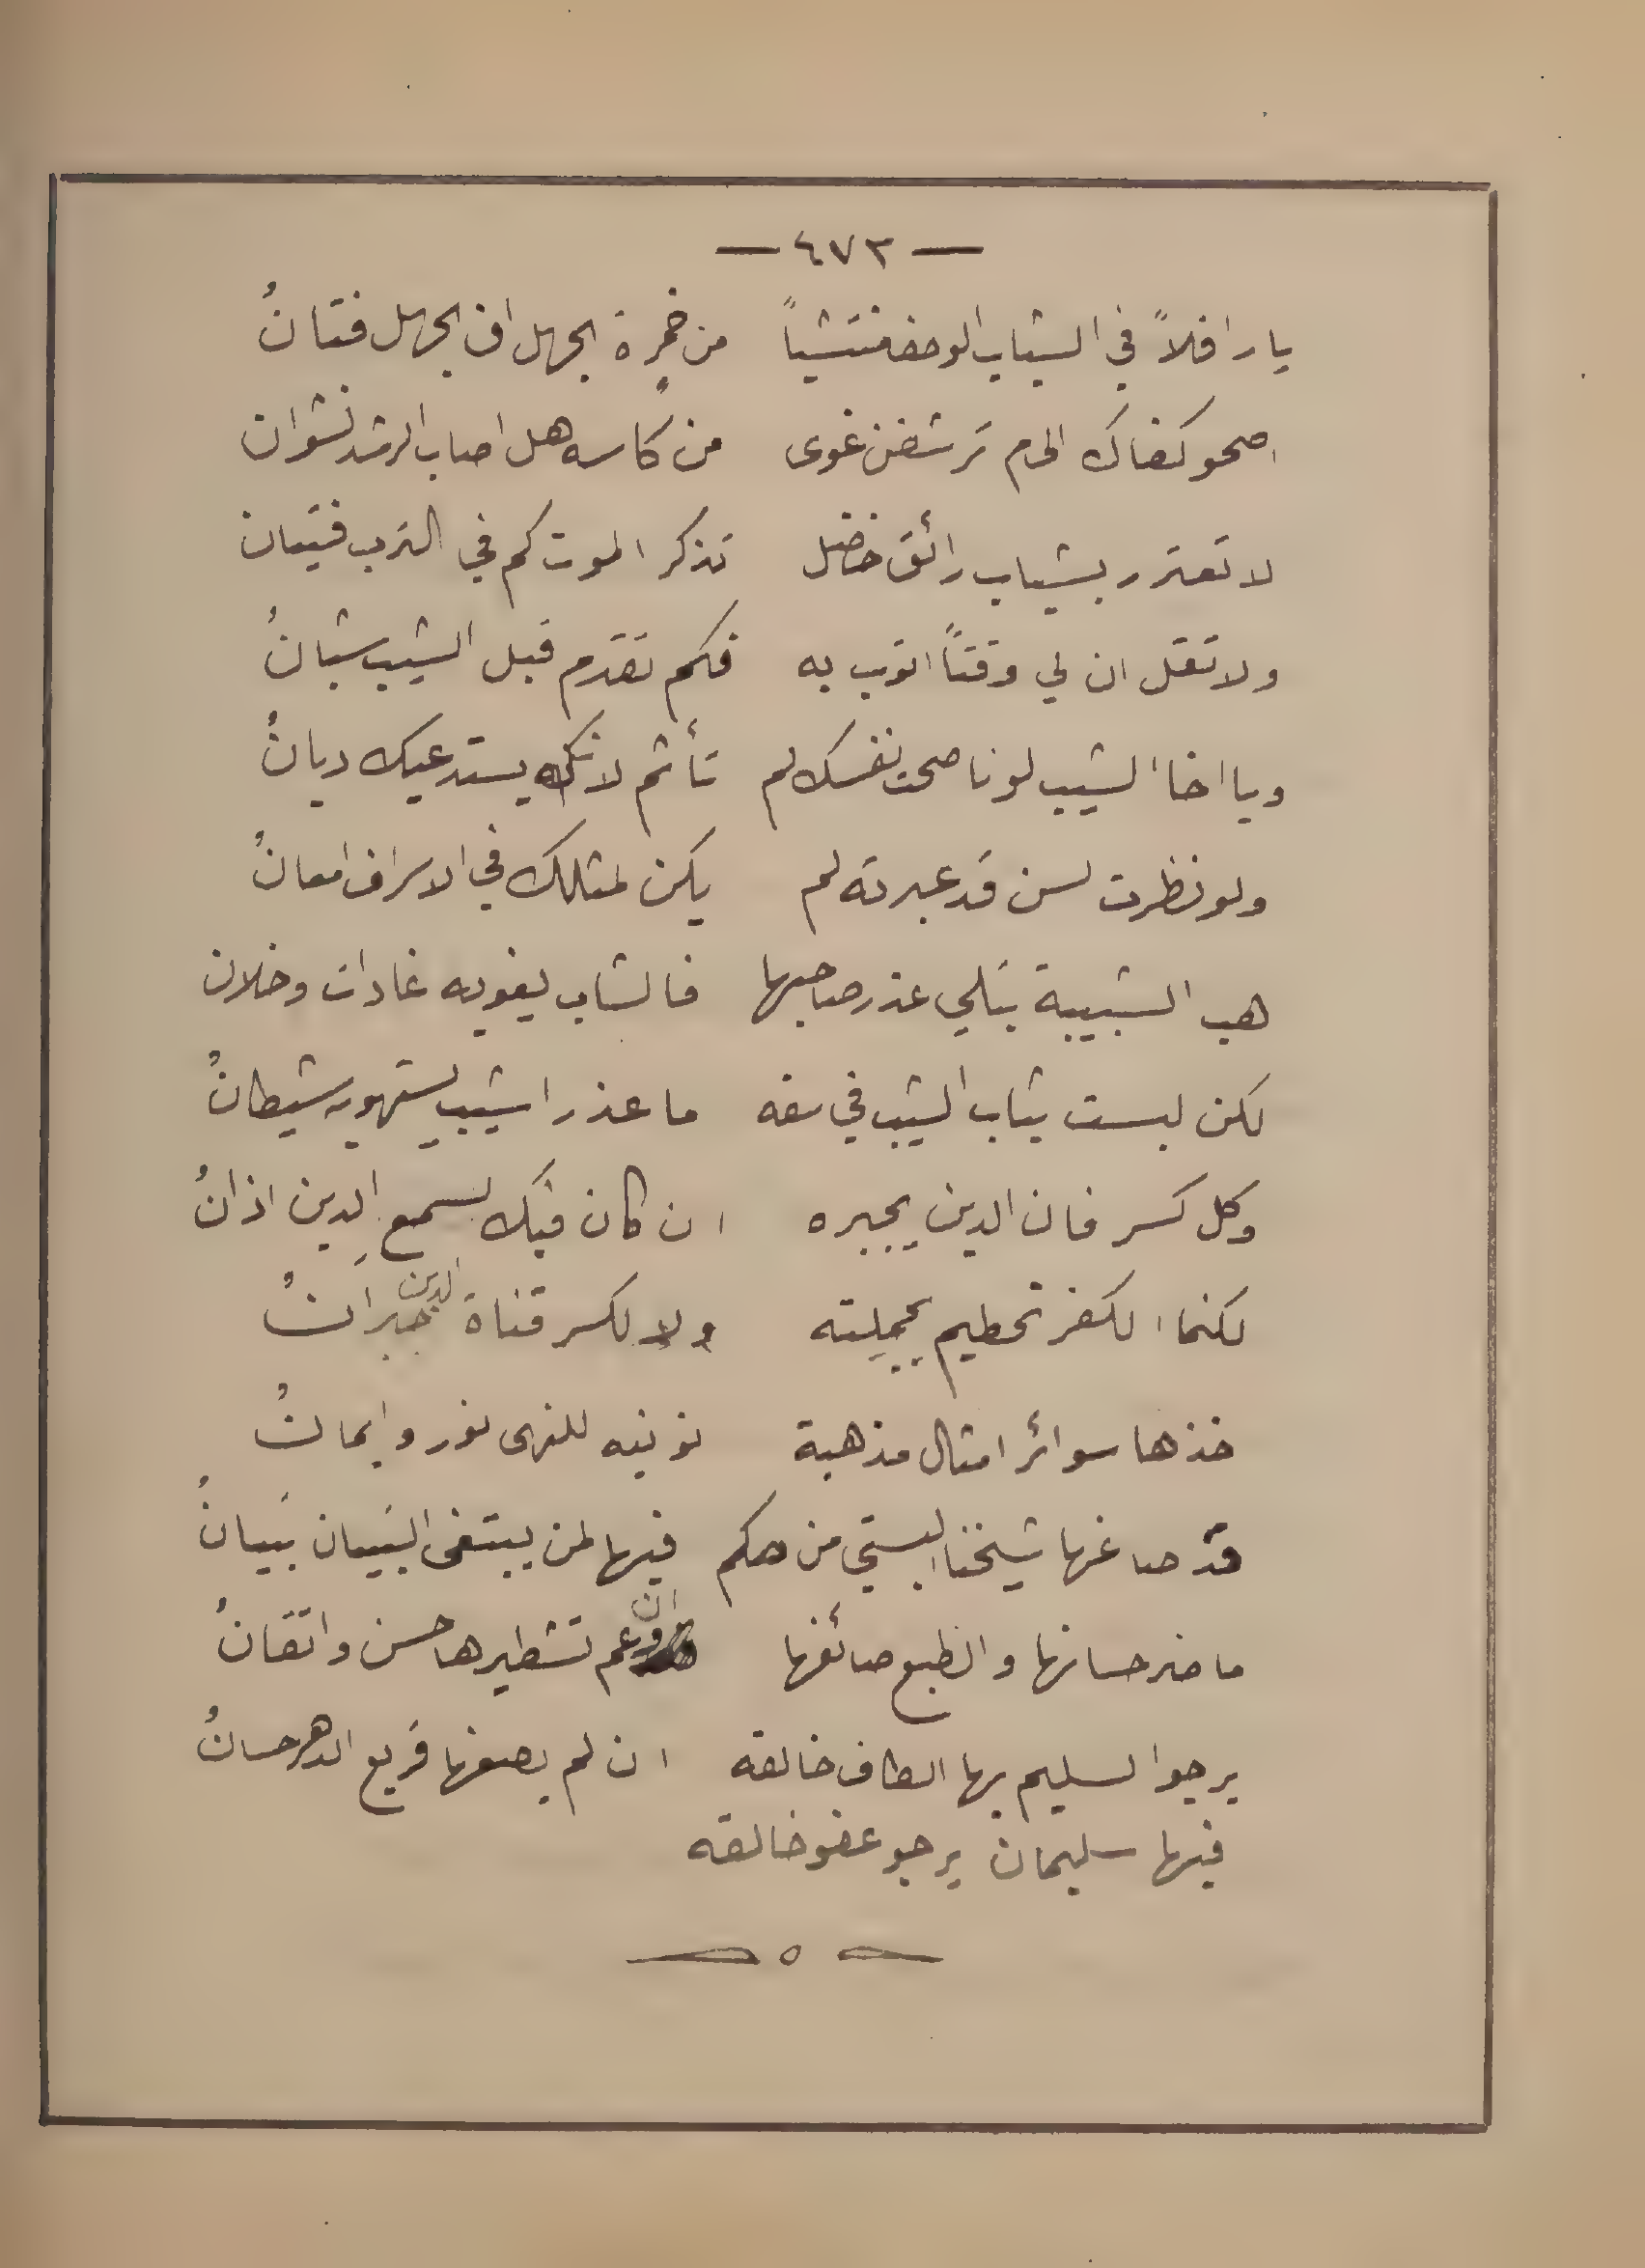 — ٤٧٣ —
يا رافلاً في الشباب الوحف منتشياً من خمرة الجهل ان الجهل فتانُ
اصحو كفاك الى م ترشفن غوى من كاسه هل اصاب الرشد نشوان
لا تغترر بشباب رائق خضل تذكر الموت كم في الترب فتيان
ولا تقل ان لي وقتاً اتوب به فكم تقدم قبل الشيب شبانُ
ويا اخا الشيب لو ناصحت نفسك لم تأثم لانك يستدعيك ديانُ
ولو نظرت لسن قد عبرته لم يكن لمثلك في الاسراف امعانُ
هب الشبيبة تبلي عذر صاحبها فالشاب يغويه غادات وخلان
لكن لبست ثياب الشيب في سفه ما عذر اشيب يستهويه شيطانُ
وكل كسر فان الدين يجبره ان كان فيك لسمع الدين اذانُ
لكنما الكفر تحطيم بجملته ولا لكسر قناة الدين جبرانُ
خذها سوائر امثال مذهبة نونيه للنهى نور وايمانُ
قد صاغها شيخنا البستي من حكم فيها لمن يبتغى التبيان تبيانُ
ما ضر حسانها والطبع صائغها ان عم تشطيرها حسن واتقانُ
يرجو السليم بها الطاف خالقه ان لم يصغها قريع الدهر حسانُ
فيها سليمان يرجو عفو خالقه